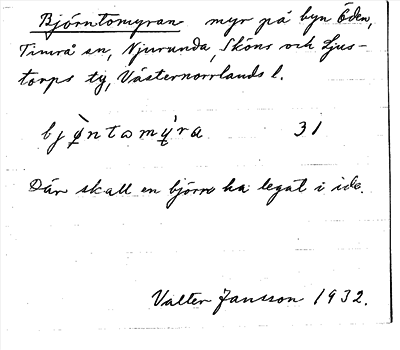 Björntomyran myr på byn Öden,
Timrå sn, Njurunda, Sköns och Ljus-
torps tg, Västernorrlands l.
bjǫ̀ntomỳ̨ra 31
Där skall en björn ha legat i ide.
Valter Jansson 1932.